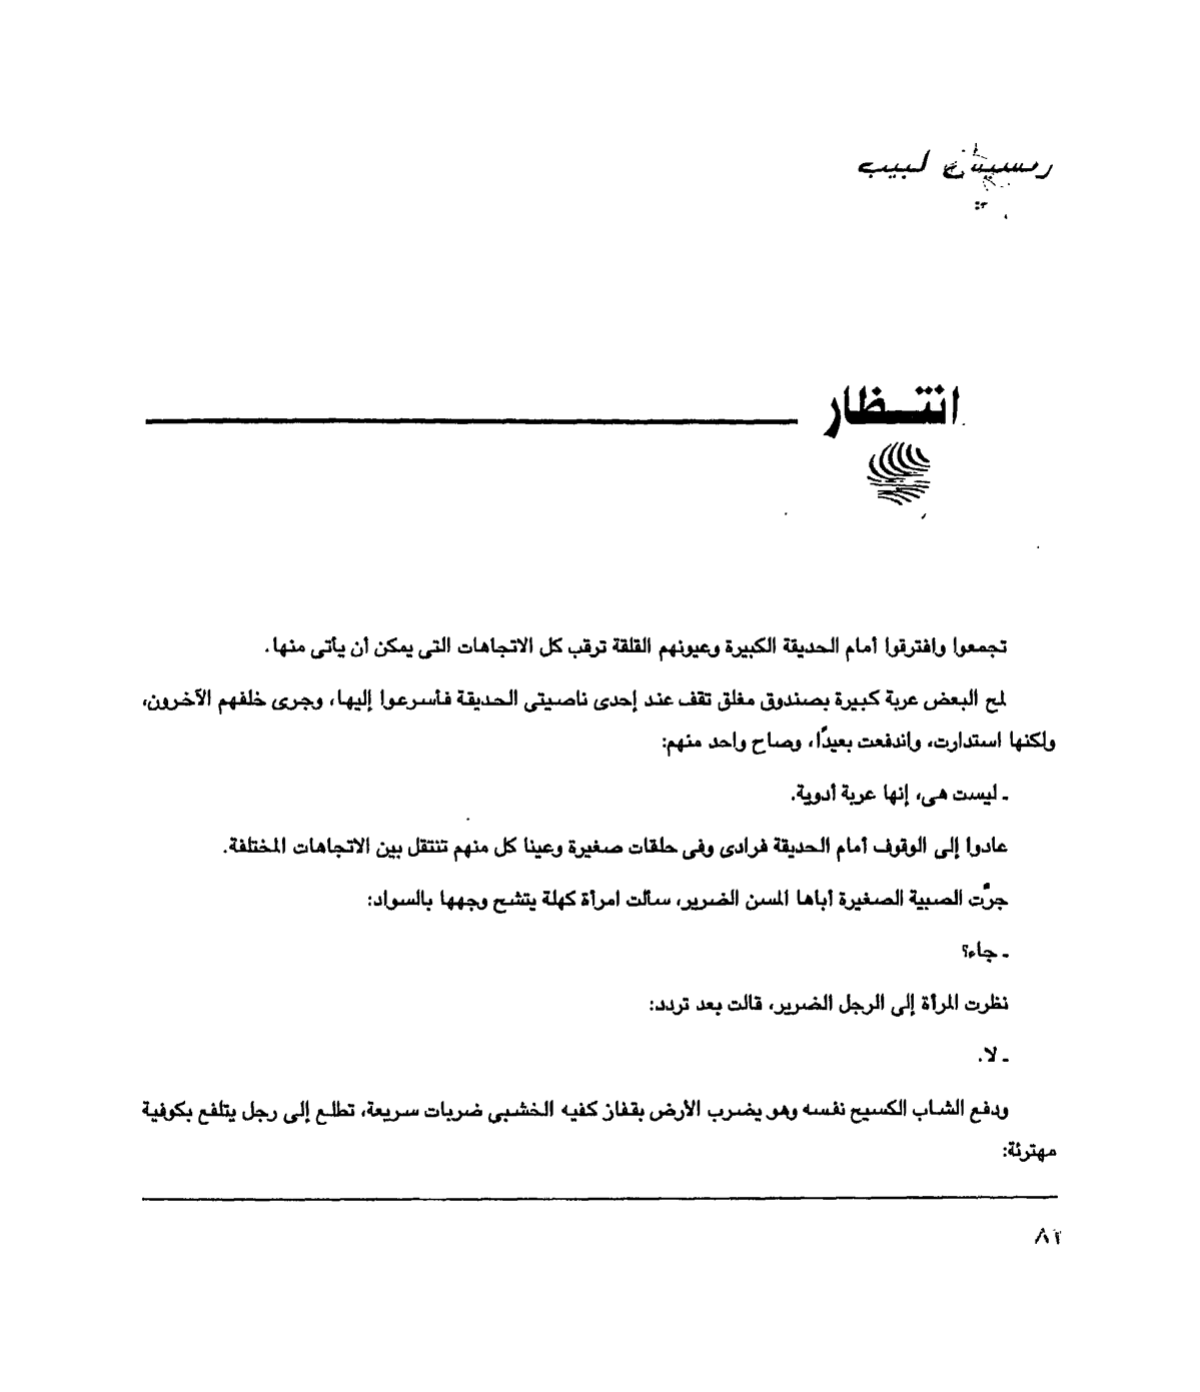 رمسيس لبيب
انتظار
تجمعوا وافترقوا أمام الحديقة الكبيرة وعيونهم القلقة ترقب كل الاتجاهات التى يمكن أن يأتى منها.
لمح البعض عربة كبيرة بصندوق مغلق تقف عند إحدى ناصيتى الحديقة فأسرعوا إليها، وجرى خلفهم الآخرون،
ولكنها استدارت، واندفعت بعيدًا، وصاح واحد منهم:
ـ ليست هى، إنها عربة أدوية.
عادوا إلى الوقوف أمام الحديقة فرادى وفى حلقات صغيرة وعينا كل منهم تنتقل بين الاتجاهات المختلفة.
جرَّت الصبية الصغيرة أباها المسن الضرير، سألت امرأة كهلة يتشح وجهها بالسواد:
ـ جاء؟
نظرت المرأة إلى الرجل الضرير، قالت بعد تردد:
ـ لا.
ودفع الشاب الكسيح نفسه وهو يضرب الأرض بقفان كفيه الخشبي ضربات سريعة، تطلع إلى رجل يتلفع بكوفية
مهترئة:
٨٢